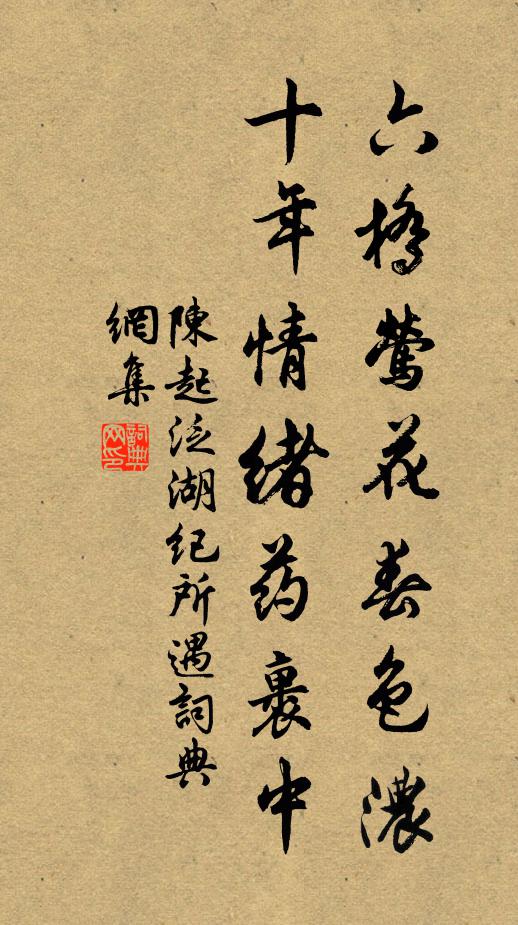 六橋鶯花春色濃
十年情緒药裹中
陳起泛湖紀所遇詞典
網集
詞典網印